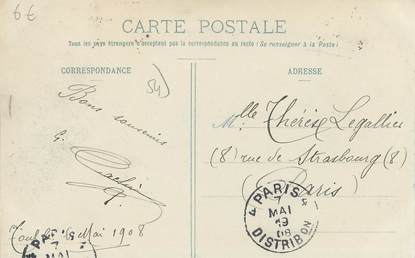 6€
CARTE POSTALE
Tous les pays étrangers n'acceptent pas la correspondance au recto (Se renseigner à la Poste)
CORRESPONDANCE
ADRESSE
54
Bons souvenirs
G.
Mai 1908
Mlle Thérèse Legallier
(8) rue de Strasbourg (8)
Paris
PARIS
7
MAI
19
08
DISTRIBON
PA
7
MAI